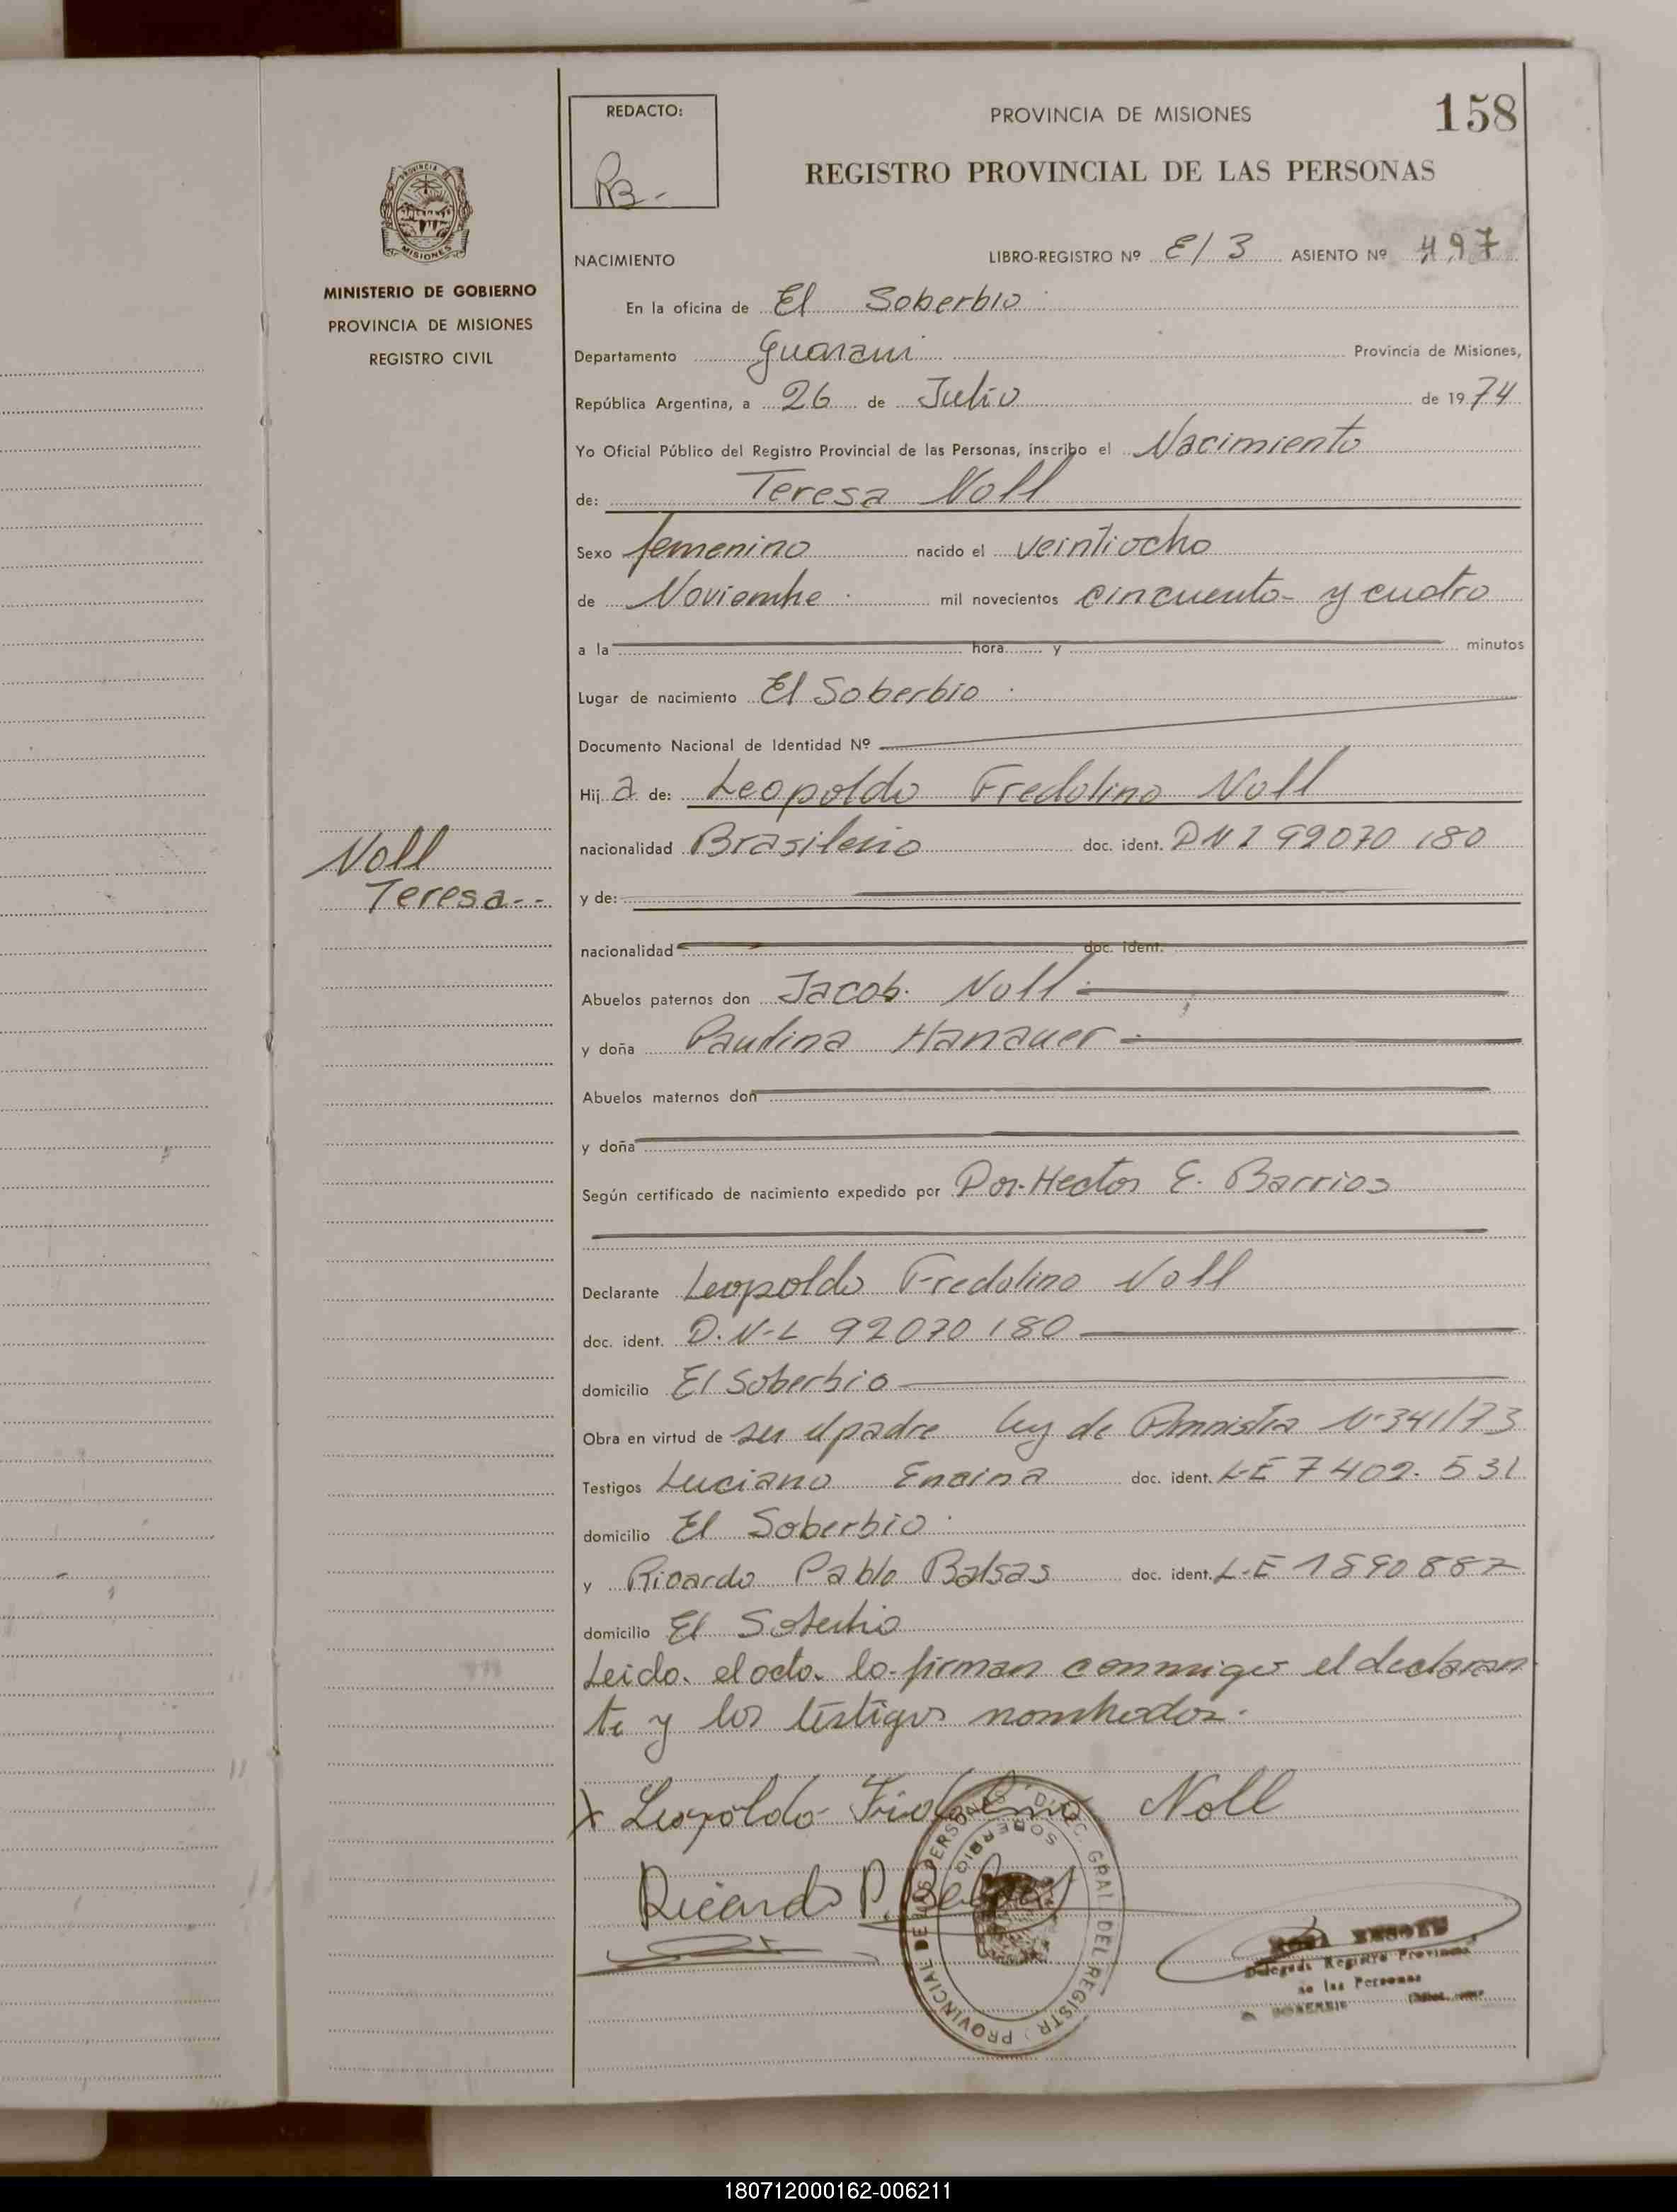 158
REDACTO:
PROVINCIA DE MISIONES
REGISTRO PROVINCIAL DE LAS PERSONAS
RB-
PROVINCIA
MISIONES
MINISTERIO DE GOBIERNO
PROVINCIA DE MISIONES
REGISTRO CIVIL
NACIMIENTO LIBRO-REGISTRO Nº E/3 ASIENTO Nº 497
En la oficina de El Soberbio
Departamento Guarani Provincia de Misiones,
República Argentina, a 26 de Julio de 1974
Yo Oficial Público del Registro Provincial de las Personas, inscribo el Nacimiento
de: Teresa Noll
Sexo femenino nacido el veintiocho
de Noviembre mil novecientos cincuenta y cuatro
a la hora y minutos
Lugar de nacimiento El Soberbio
Documento Nacional de Identidad Nº
Hij a de: Leopoldo Fredolino Noll
nacionalidad Brasileño doc. ident. DNI 92070180
Noll
Teresa--
y de:
nacionalidad doc. ident.
Abuelos paternos don Jacob. Noll
y doña Paulina Hanauer
Abuelos maternos don
y doña
Según certificado de nacimiento expedido por Por-Hector E. Barrios
Declarante Leopoldo Fredolino Noll
doc. ident. D.N-I 92070180
domicilio El Soberbio
Obra en virtud de ser el padre ley de Amnistia Nº 341/73
Testigos Luciano Encina doc. ident. L-E 7402.531
domicilio El Soberbio
y Ricardo Pablo Balsas doc. ident. L-E 1890887
domicilio El Soberbio
Leido. el acto. lo-firman conmigo el declaran
te y los testigos nombrados.
X Leopoldo Fridolino Noll
Ricardo P. Balsas
DIREC. GRAL. DEL REGISTRO PROVINCIAL DE LAS PERSONAS
SOBERBIO
Delegada Registro Provincial
de las Personas
180712000162-006211